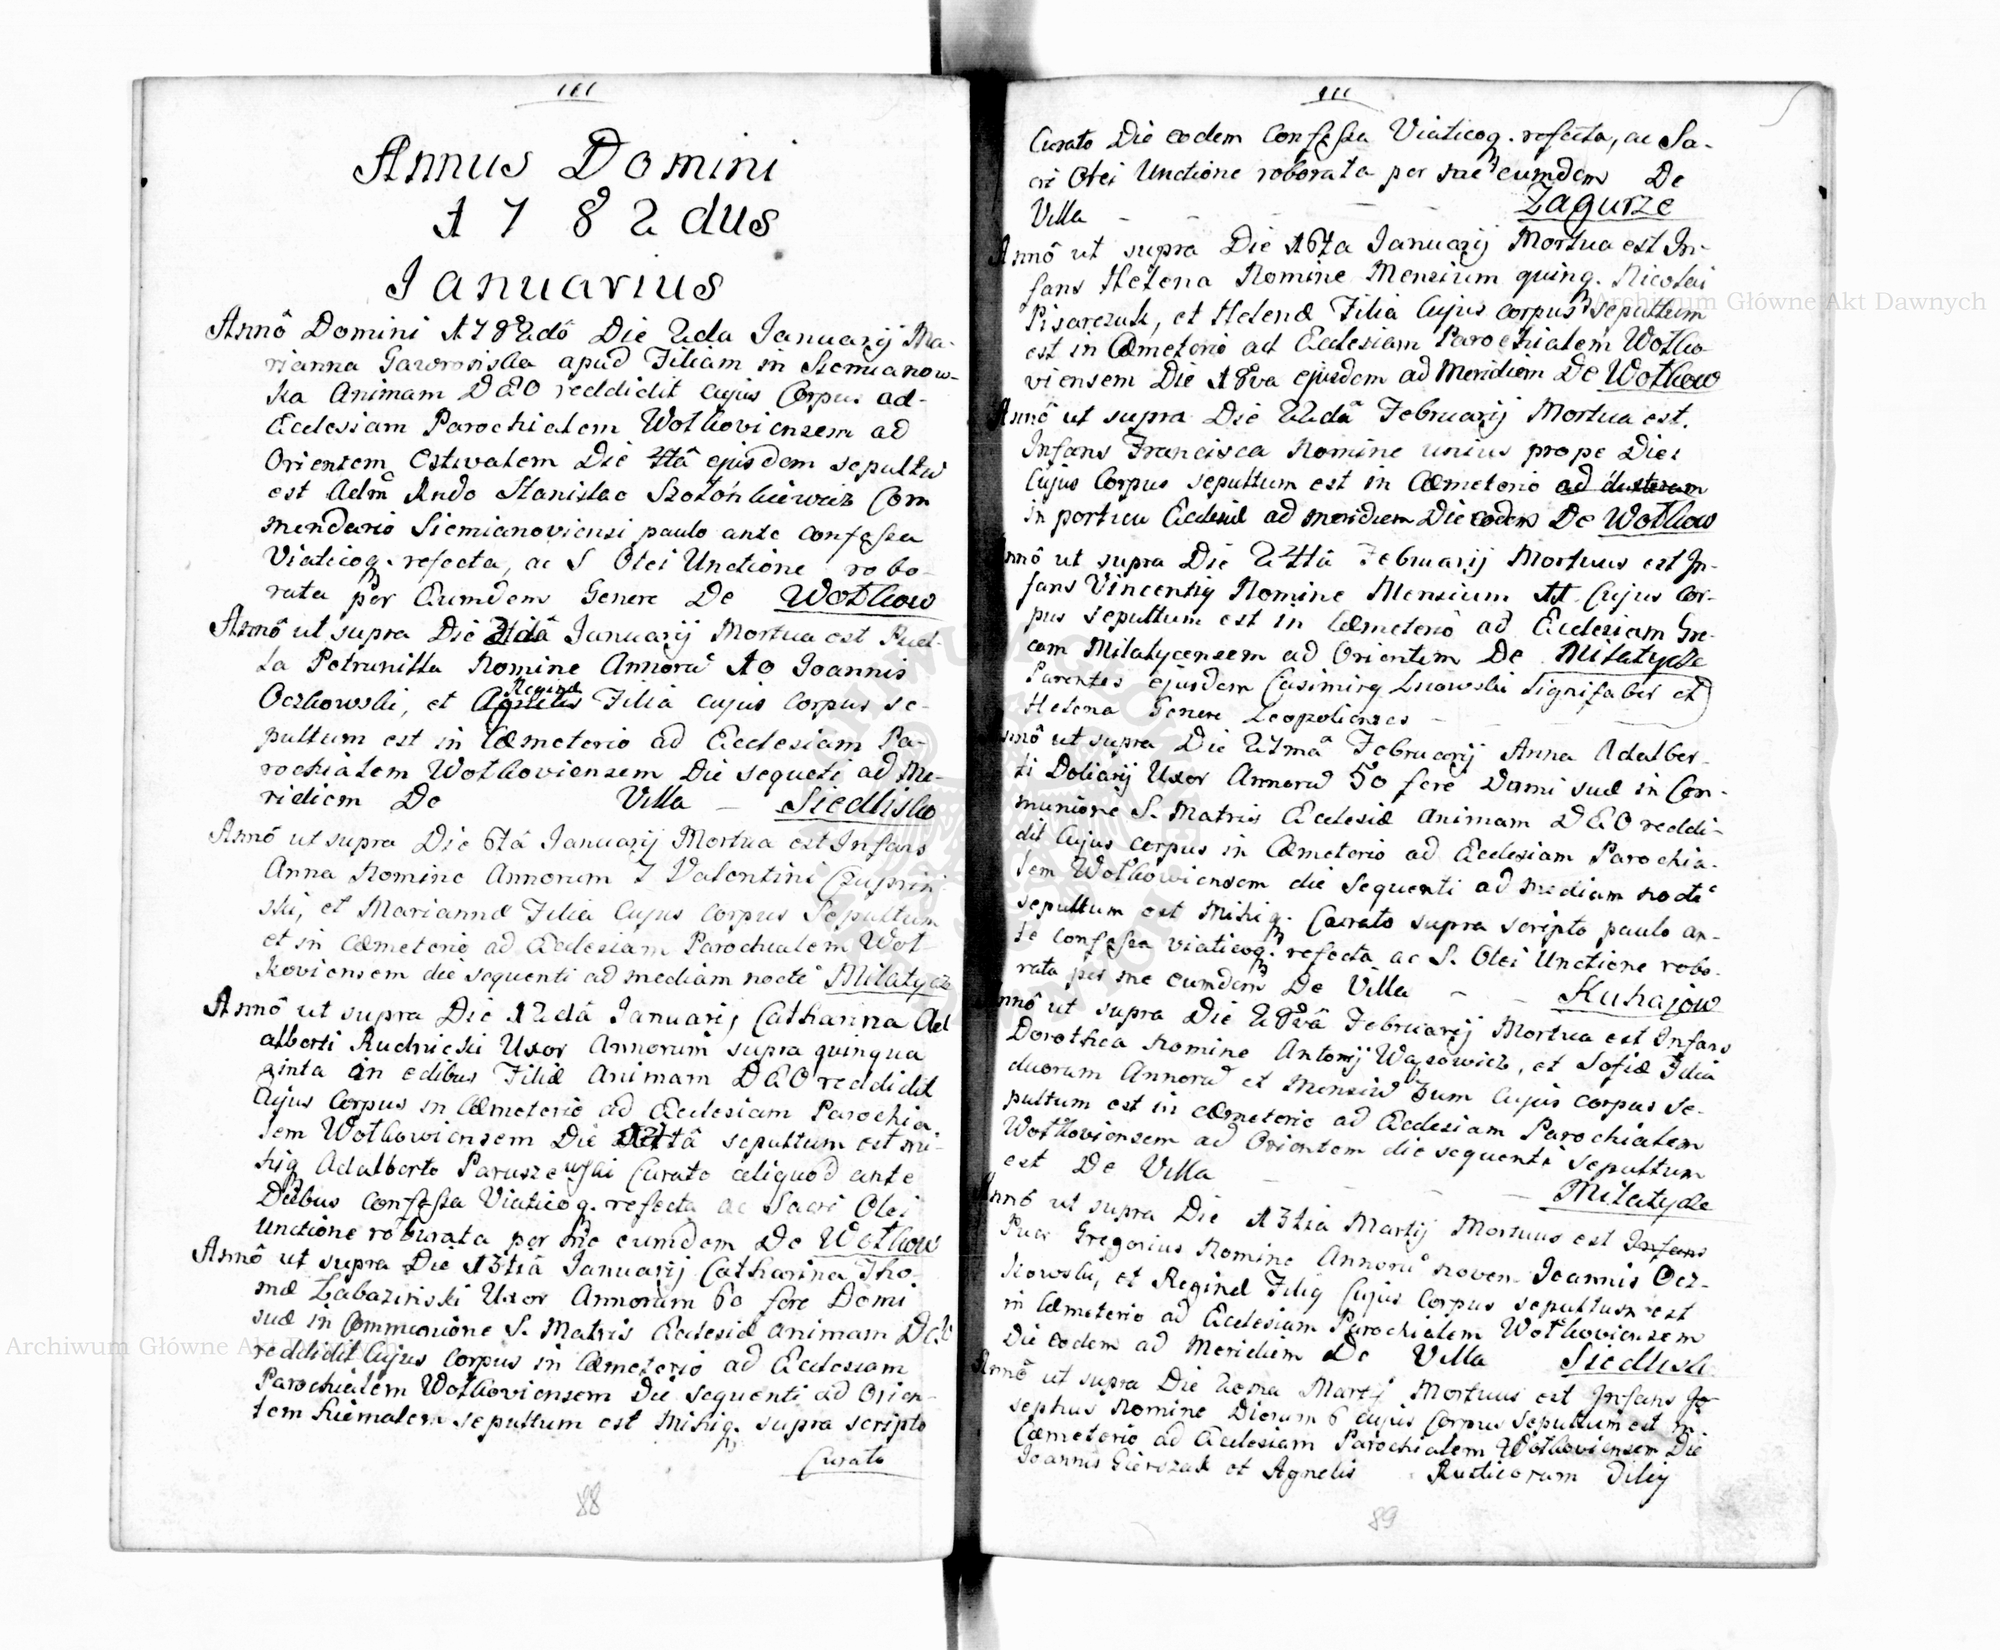 Annus Domini
1782dus
Ianuarius
Annô Domini 1782dô Die 2da Ianuarij Ma-
rianna Gawronska apud Filiam in Siemianow-
ka Animam DEO reddidit cujus Corpus ad
Ecclesiam Parochialem Wołkoviensem ad
Orientem Estivalem Die 4tâ ejusdem sepultū
est Adm Rndo Stanislao Com
mendario Siemianoviensi paulo ante confessa
Viaticoq. refecta, ac S Olei Unctione robo-
rata per Eumdem Genere De Wołkow
Annô ut supra Die Ianuarij Mortua est Puel-
la Petrunilla Nomine Annorū 10 Joannis
Oczkowski, et Agnetis Reginæ Filia cujus corpus se-
pultum est in Cæmeterio ad Ecclesiam Pa-
rochialem Wołkoviensem Die sequeti ad Me-
ridiem De Villa - Siedlisko
Annô ut supra Die 6tâ Ianuarij Mortua est Infans
Anna Nomine Annorum 7 Valentini Czuprin
ski, et Mariannæ Filia Cujus corpus Sepultum
et in Cæmeterio ad Ecclesiam Parochialem Woł-
koviensem die sequenti ad mediam nocte Milatycz
Annô ut supra Die 12dâ Ianuarij Catharina Ad
alberti Rudnicki Uxor Annorum supra quinqua
ginta in edibus Filiæ Animam DEO reddidit
Cujus Corpus in Cæmeterio ad Ecclesiam Parochia
lem Wołkowiensem Die sepultum est mi-
hiq Adalberto Paruszewski Curato aliquod ante
Diebus confessa Viaticoq. refecta ac Sacri Olei
Unctione roburata per me eumdem De Wołkow
Annô ut supra Die 13tiâ Ianuarij Catharina Tho-
mæ Łabazinski Uxor Annorum 60 fere Domi
suæ in Communione S. Matris Ecclesiæ animam DEO
reddidit Cujus corpus in Cæmeterio ad Ecclesiam
Parochialem Wołkoviensem Die sequenti ad Orien-
tem hiemalem sepultum est Mihiq. supra scripto
Curato
88
Curato Die eodem Confessa Viaticoq. refecta, ac Sa-
cri Olei Unctione roborata per me eumdem De
Villa - - - - Zagurze
Annô ut supra Die 16ta Ianuarij Mortua est In-
fans Helena Nomine Mensium quinq. Nicolai
Pisarczuk, et Helenæ Filia Cujus corpus sepultum
est in Cæmeterio ad Ecclesiam Parochialem Wołko
viensem Die 18va ejusdem ad Meridiem De Wołkow
Annô ut supra Die 22dâ Februarij Mortua est.
Infans Francisca Nomine unius prope Diei
Cujus Corpus sepultum est in Cæmeterio ad
in porticu Ecclesiæ ad meridiem Die eodem De Wołkow
Annô ut supra Die 24tâ Februarij Mortuus est In-
fans Vincentiy Nomine Mensium 11. Cujus Cor-
pus sepultum est in Cæmeteriô ad Ecclesiam Gre-
cam Milatycensem ad Orientem De Milatycze
Parentes ejusdem Casimirq Lnowski Lignifaber et
Helena Genere Leopolienses - - -
Annô ut supra Die 27mâ Februarij Anna Adalber-
ti Doliarij Uxor Annorū 50 fere Domi suæ in Com-
munione S. Matris Ecclesiæ animam DEO reddi-
dit Cujus corpus in Cæmeterio ad Ecclesiam Parochia-
lem Wołkowiensem die sequenti ad mediam noctē
sepultum est Mihiq. Curato supra scripto paulo an-
te confessa viaticoq. refecta ac S. Olei Unctione robo-
rata per me eumdem De Villa - - Kuhajów
Annô ut supra Die 28vâ Februarij Mortua est Infans
Dorothea Nomine Antonij Wąsowicz, et Sofiæ Filia
duorum Annorū et Mensiū 3um Cujus corpus se-
pultum est in cæmeterio ad Ecclesiam Parochialem
Wołkoviensem ad Orientem die sequenti sepultum
est De Villa - - - - Milatycze
Annô ut supra Die 13tia Martij Mortuus est Infans
Puer Gregorius Nomine Annorū noven Joannis Ocz-
kowski, et Reginæ Filiq Cujus Corpus sepultum est
in Cæmeterio ad Ecclesiam Parochialem Wołkoviensem
Die eodem ad Meridiem De Villa Siedlisk.
Annô ut supra Die 20ma Martij Mortuus est Infans Jo
sephus Nomine Dierum 6 cujus Corpus sepultum est in
Cæmeterio ad Ecclesiam Parochialem Wołkoviensem Die
Joannis Gierczak et Agnetis Rusticorum Filiq
89
Archiwum Główne Akt Dawnych
Archiwum Główne Akt Dawnych